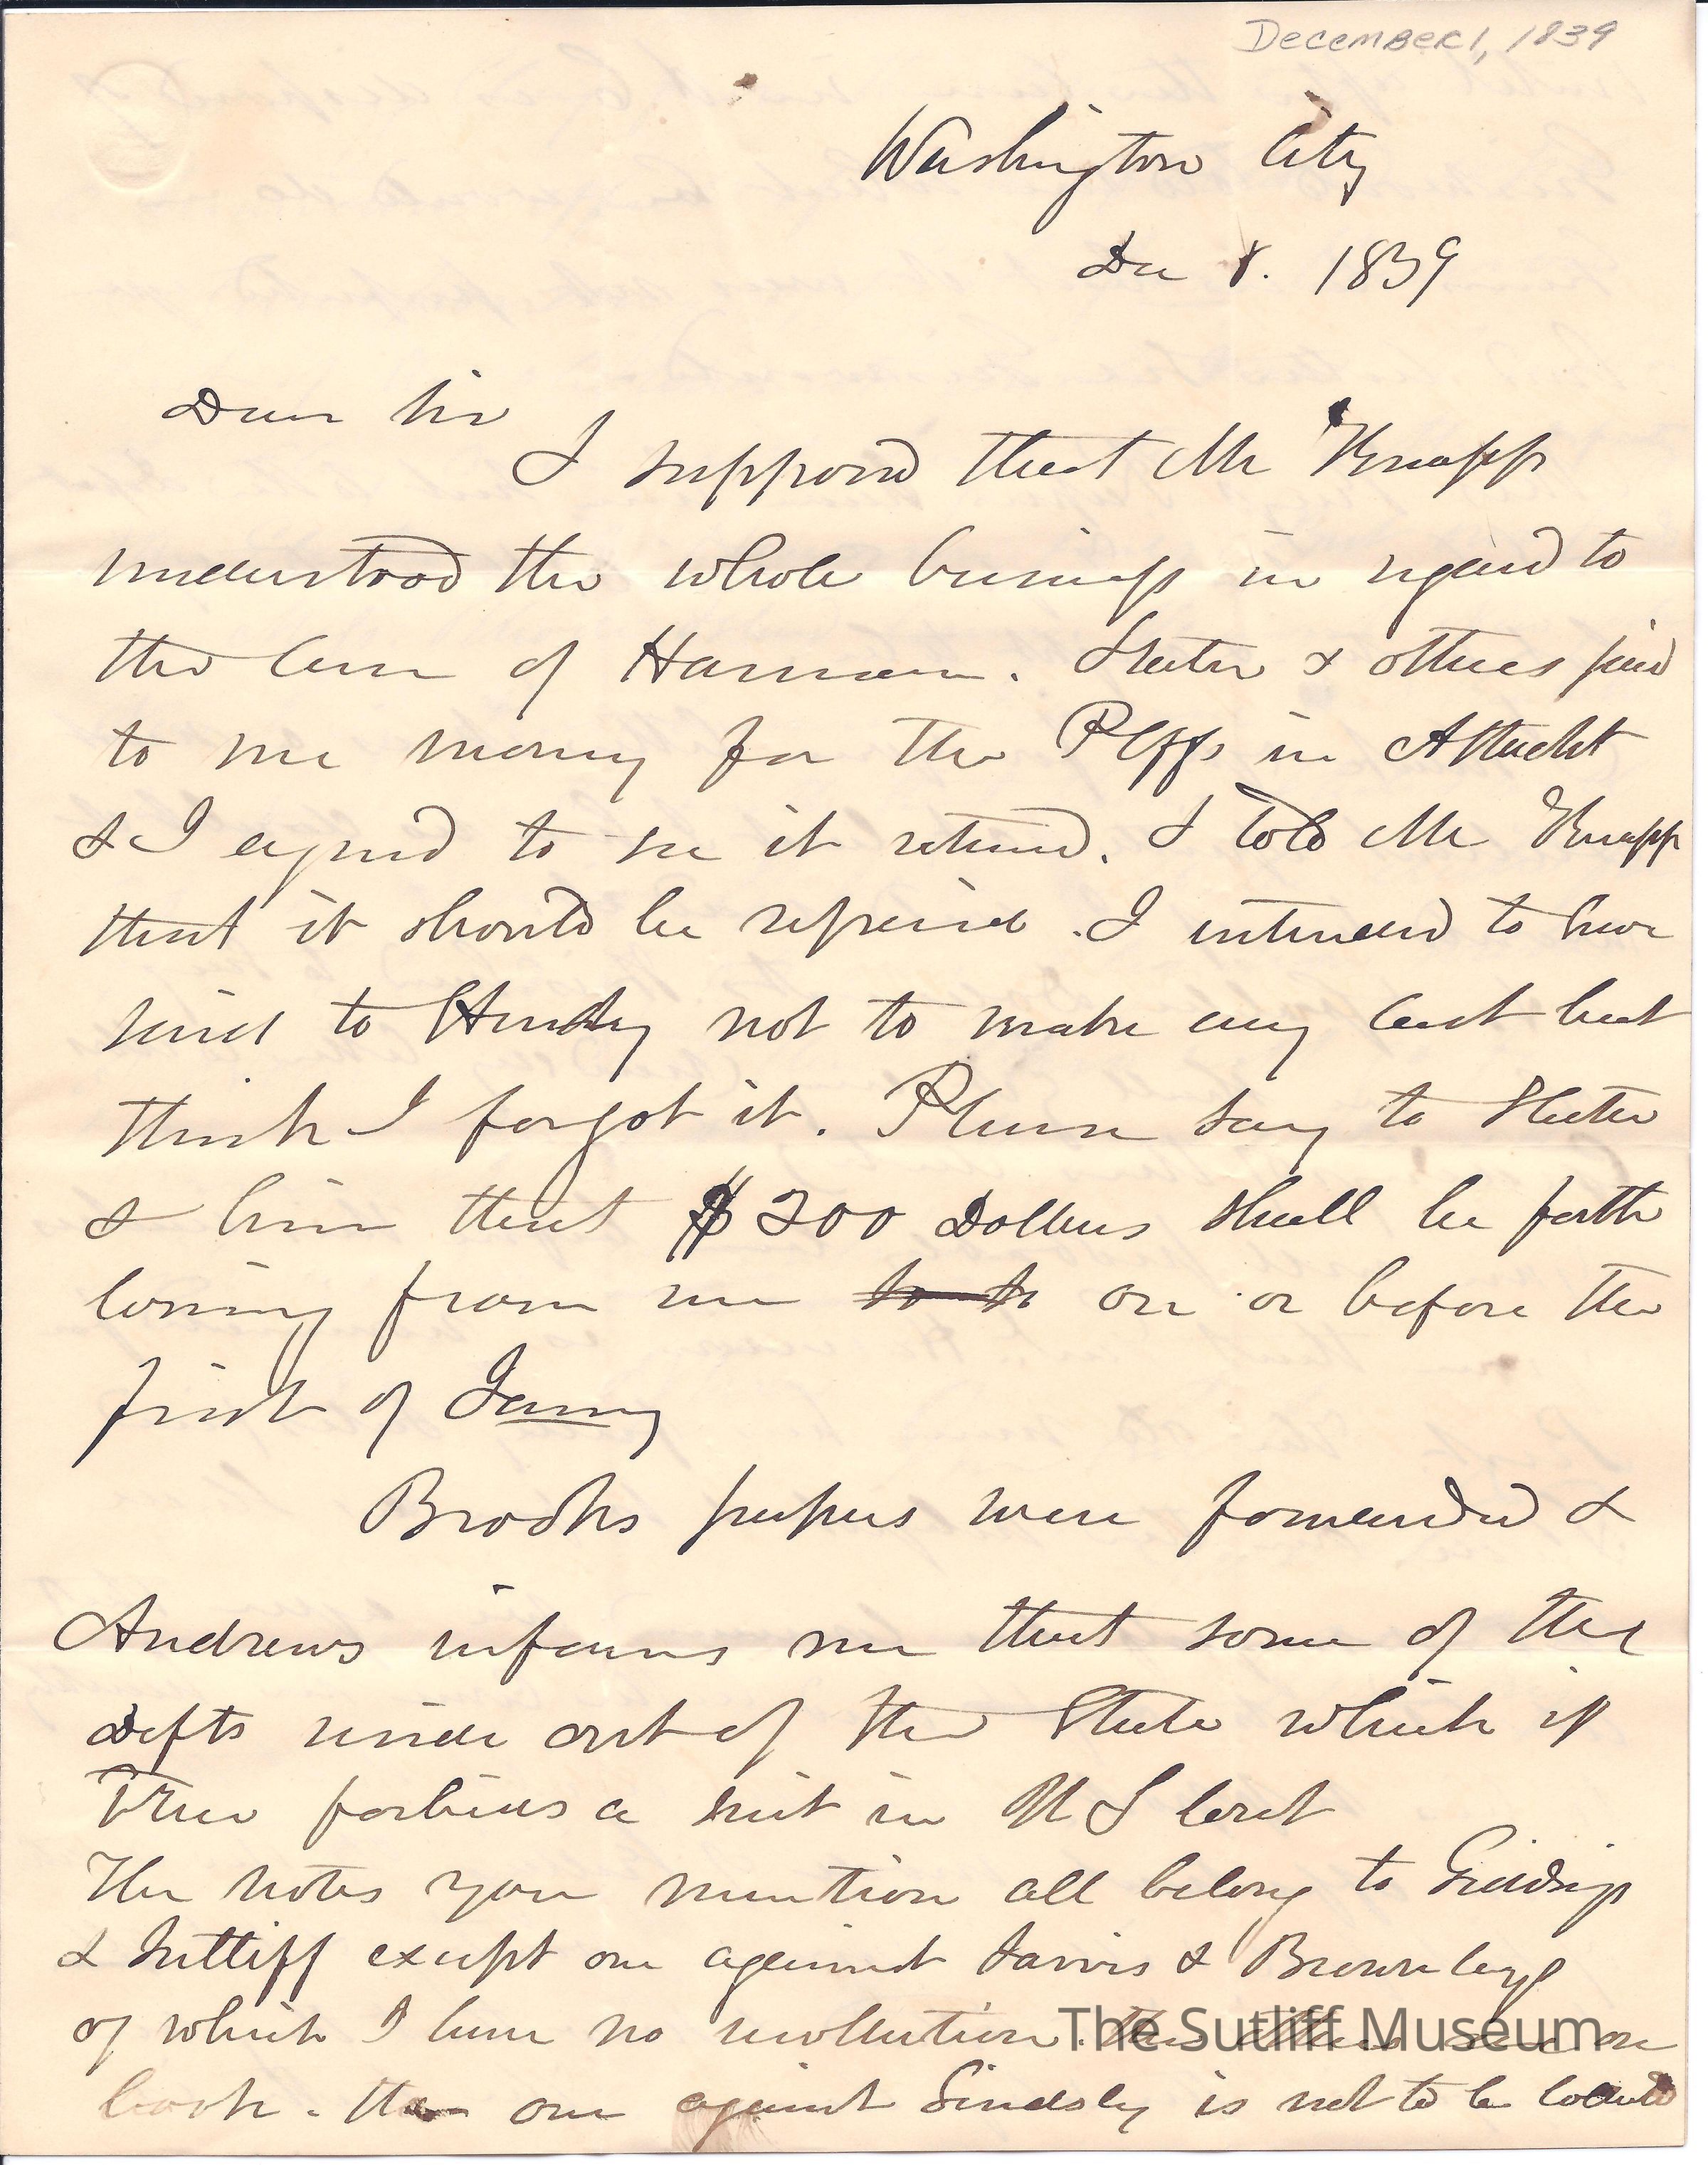 December 1, 1839
Washington City
Dec 1. 1839
Dear Sir
I supposed that Mr Knapp
understood the whole business in regard to
the case of Harmon. Sleeter & others paid
to me money for the Plffs in Attacht
& I agreed to see it returned. I told Mr Knapp
that it should be repaid. I intended to have
said to Hendry not to make any cost but
think I forgot it. Please say to Sleeter
& him that $200 Dollars shall be forth
coming from me to be on or before the
first of Jany
Brooks papers were forwarded &
Andrews informs me that some of the
Defts reside out of the State which if
true forbids a suit in U S Court
The notes you mention all belong to Giddings
& Sutliff except one against Jarvis & Brownleys
of which I have no recollection. The others are on
book. The one against Lindsley is not to be collected
The Sutliff Museum